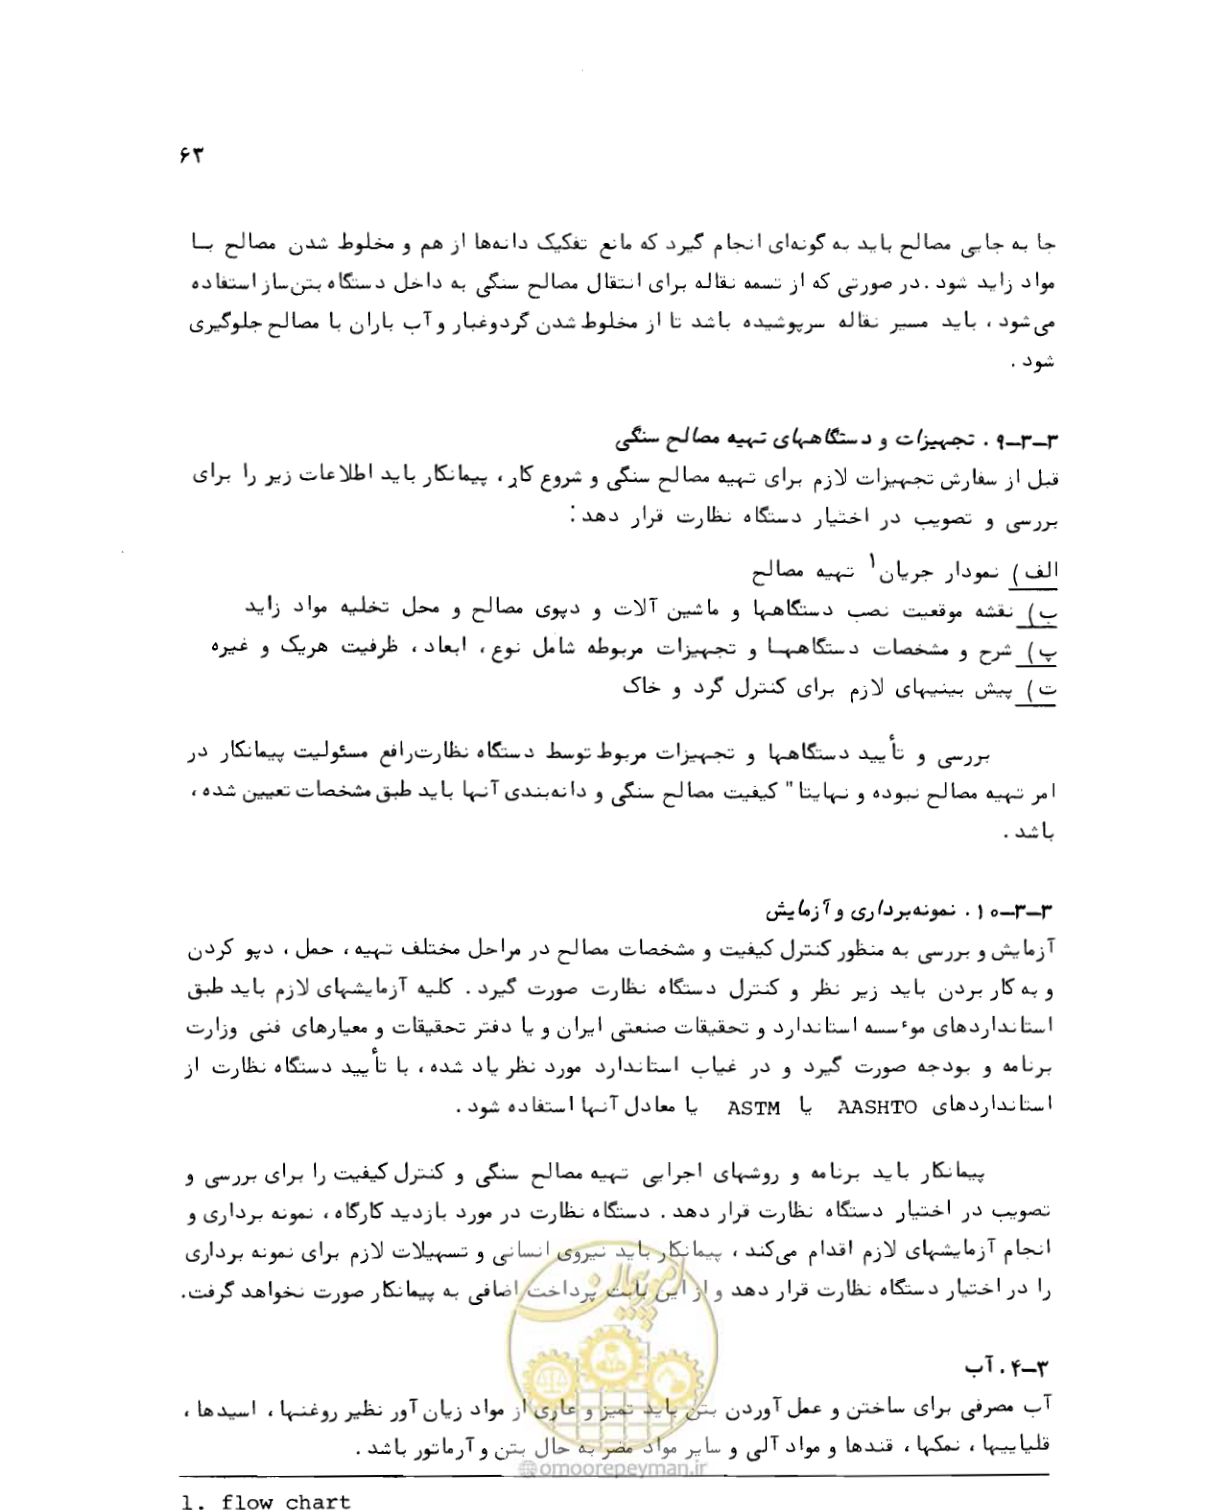 ۶۳
جا به جایی مصالح باید به گونه‌ای انجام گیرد که مانع تفکیک دانه‌ها از هم و مخلوط شدن مصالح بـا
مواد زاید شود . در صورتی که از تسمه نقاله برای انتقال مصالح سنگی به داخل دستگاه بتن‌ساز استفاده
می‌شود ، باید مسیر نقاله سرپوشیده باشد تا از مخلوط شدن گردوغبار و آب باران با مصالح جلوگیری
شود .
۳-۳-۹ . تجهیزات و دستگاههای تهیه مصالح سنگی
قبل از سفارش تجهیزات لازم برای تهیه مصالح سنگی و شروع کار ، پیمانکار باید اطلاعات زیر را برای
بررسی و تصویب در اختیار دستگاه نظارت قرار دهد :
الف ) نمودار جریان۱ تهیه مصالح
ب ) نقشه موقعیت نصب دستگاهها و ماشین آلات و دپوی مصالح و محل تخلیه مواد زاید
پ ) شرح و مشخصات دستگاههـا و تجهیزات مربوطه شامل نوع ، ابعاد ، ظرفیت هریک و غیره
ت ) پیش بینیهای لازم برای کنترل گرد و خاک
بررسی و تأیید دستگاهها و تجهیزات مربوط توسط دستگاه نظارت‌رافع مسئولیت پیمانکار در
امر تهیه مصالح نبوده و نهایتا" کیفیت مصالح سنگی و دانه‌بندی آنها باید طبق مشخصات تعیین شده ،
باشد .
۳-۳-۱۰ . نمونه‌برداری و آزمایش
آزمایش و بررسی به منظور کنترل کیفیت و مشخصات مصالح در مراحل مختلف تهیه ، حمل ، دپو کردن
و به کار بردن باید زیر نظر و کنترل دستگاه نظارت صورت گیرد . کلیه آزمایشهای لازم باید طبق
استانداردهای موءسسه استاندارد و تحقیقات صنعتی ایران و یا دفتر تحقیقات و معیارهای فنی وزارت
برنامه و بودجه صورت گیرد و در غیاب استاندارد مورد نظر یاد شده ، با تأیید دستگاه نظارت از
استانداردهای AASHTO یا ASTM یا معادل آنها استفاده شود .
پیمانکار باید برنامه و روشهای اجرایی تهیه مصالح سنگی و کنترل کیفیت را برای بررسی و
تصویب در اختیار دستگاه نظارت قرار دهد . دستگاه نظارت در مورد بازدید کارگاه ، نمونه برداری و
انجام آزمایشهای لازم اقدام می‌کند ، پیمانکار باید نیروی انسانی و تسهیلات لازم برای نمونه برداری
را در اختیار دستگاه نظارت قرار دهد و از این بابت پرداخت اضافی به پیمانکار صورت نخواهد گرفت.
امور پیمان
۳-۴ . آب
آب مصرفی برای ساختن و عمل آوردن بتن باید تمیز و عاری از مواد زیان آور نظیر روغنها ، اسیدها ،
قلیاییها ، نمکها ، قندها و مواد آلی و سایر مواد مضر به حال بتن و آرماتور باشد .
@omoorepeyman.ir
1. flow chart